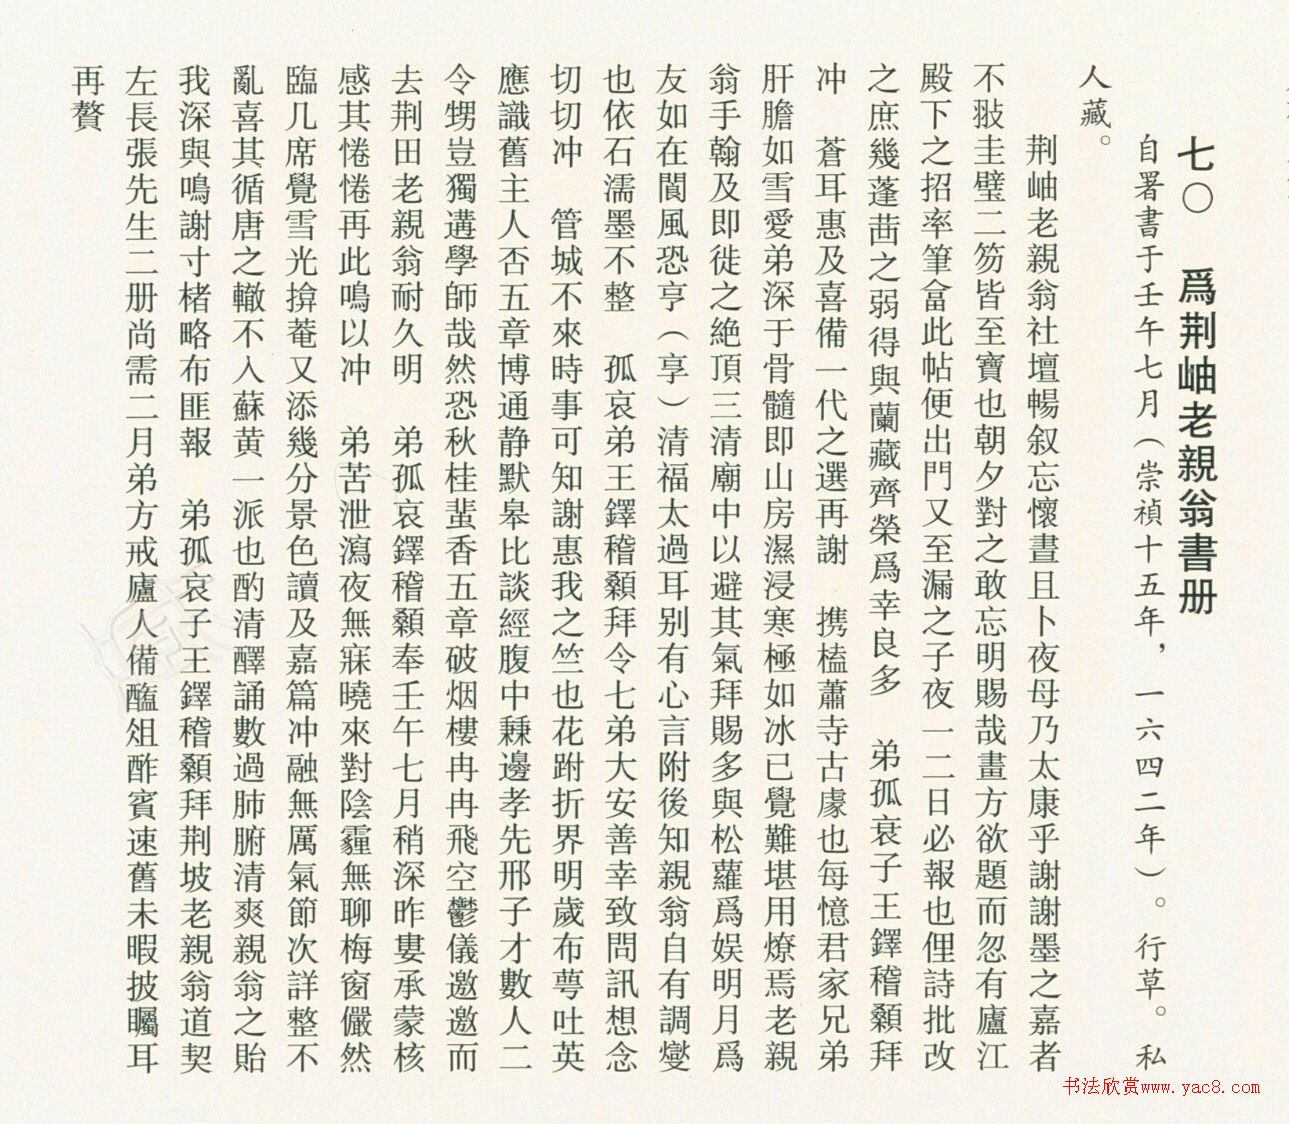 七〇　爲荆岫老親翁書册
自署書于壬午七月（崇禎十五年，一六四二年）。行草。私
人藏。
荆岫老親翁社壇暢叙忘懷晝且卜夜母乃太康乎謝謝墨之嘉者
不敊圭璧二笏皆至寶也朝夕對之敢忘明賜哉畫方欲題而忽有廬江
殿下之招率筆畣此帖便出門又至漏之子夜一二日必報也俚詩批改
之庶幾蓬茜之弱得與蘭藏齊榮爲幸良多　弟孤哀子王鐸稽顙拜
冲　蒼耳惠及喜備一代之選再謝　携榼蕭寺古䖍也每憶君家兄弟
肝膽如雪愛弟深于骨髓即山房濕浸寒極如冰已覺難堪用燎焉老親
翁手翰及即徙之絶頂三清廟中以避其氣拜賜多與松蘿爲娱明月爲
友如在閬風恐亨（享）清福太過耳别有心言附後知親翁自有調燮
也依石濡墨不整　孤哀弟王鐸稽顙拜令七弟大安善幸致問訊想念
切切冲　管城不來時事可知謝惠我之竺也花跗折界明歲布萼吐英
應識舊主人否五章博通静默皋比談經腹中秝邊孝先邢子才數人二
令甥豈獨遘學師哉然恐秋桂蜚香五章破烟樓冉冉飛空鬱儀邀邀而
去荆田老親翁耐久明　弟孤哀鐸稽顙奉壬午七月稍深昨婁承蒙核
感其惓惓再此鳴以冲　弟苦泄瀉夜無寐曉來對陰霾無聊梅窗儼然
臨几席覺雪光揜菴又添幾分景色讀及嘉篇冲融無厲氣節次詳整不
亂喜其循唐之轍不入蘇黄一派也酌清醳誦數過肺腑清爽親翁之貽
我深與鳴謝寸楮略布匪報　弟孤哀子王鐸稽顙拜荆坡老親翁道契
左長張先生二册尚需二月弟方戒廬人備醢俎酢賓速舊未暇披矚耳
再贅
书法欣赏www.yac8.com